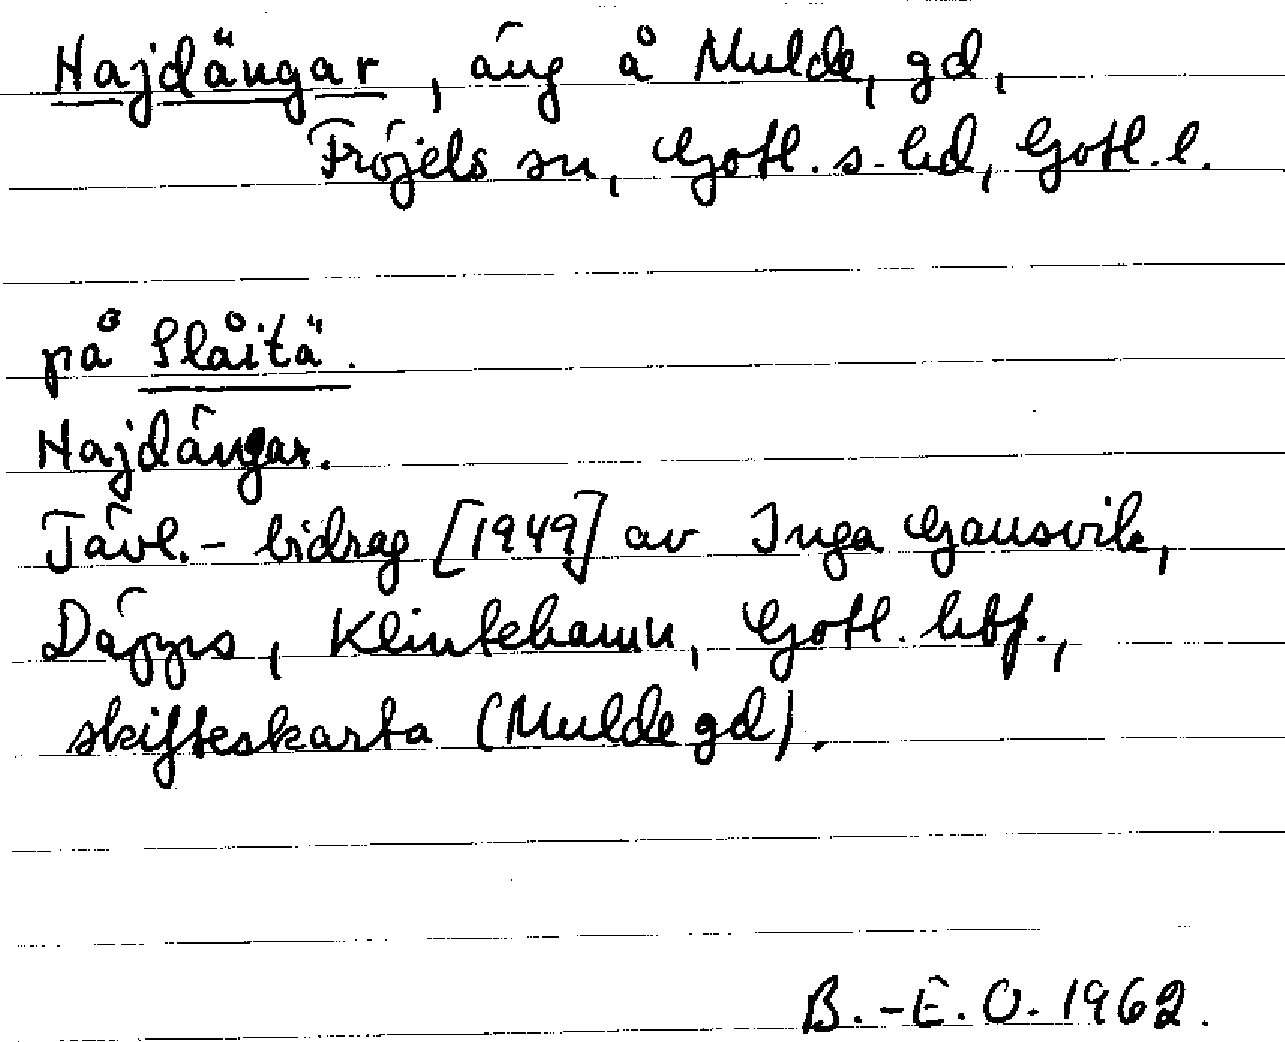 Hajdängar, äng å Mulde, gd,
Fröjels sn, Gotl. s. hd, Gotl. l.
på Slåitä.
Hajdängar.
Tävl.-bidrag [1949] av Inga Gansvik,
Däpps, Klintehamn, Gotl. hbf.,
skifteskarta (Mulde gd).
B.-E. O. 1962.